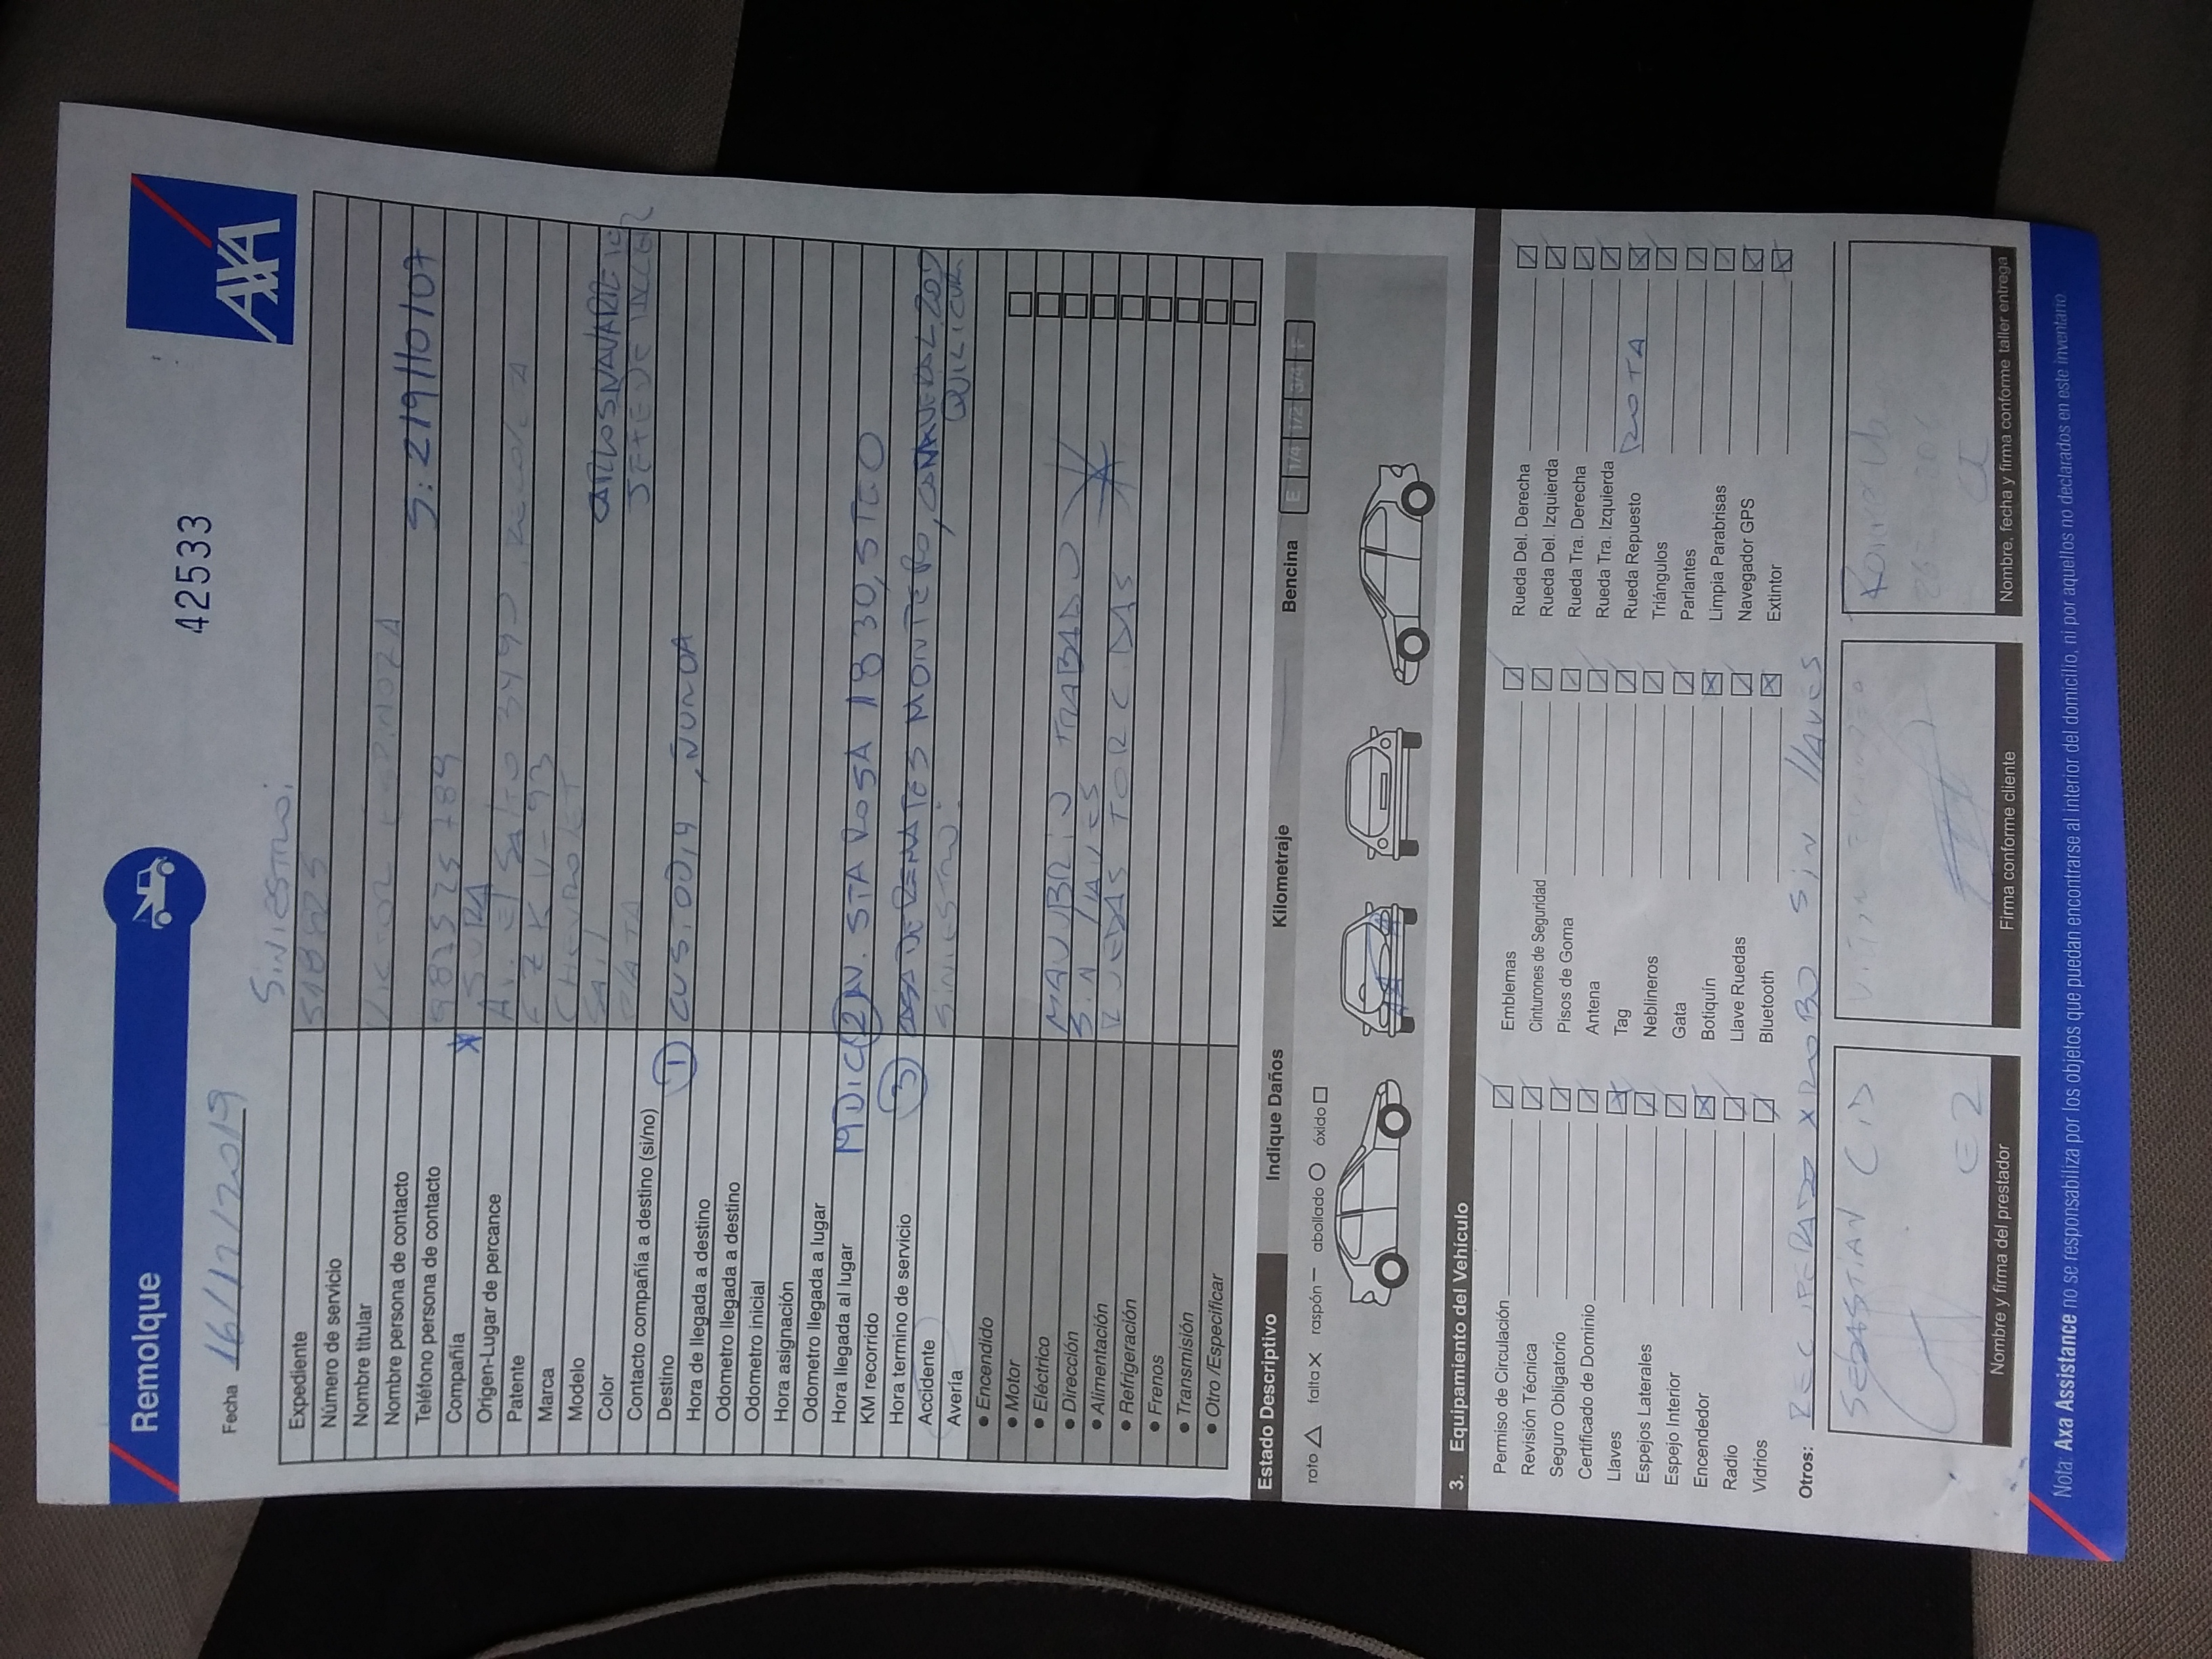 Remolque
AXA
Fecha 16/12/2019
42533
SINIESTRO:
Expediente
Número de servicio
Nombre titular VICTOR
Nombre persona de contacto
S: 219110107
Teléfono persona de contacto
Compañía SURA
Origen-Lugar de percance AV. El Salto 3449
Patente
Marca CHEVROLET
Modelo SAIL
CARLOS NAVARRETE
Color PLATA
Contacto compañía a destino (si/no)
Destino ① CUSTODIA, ÑUÑOA
Hora de llegada a destino
Odometro llegada a destino
Odometro inicial
Hora asignación
Odometro llegada a lugar
Hora llegada al lugar
19 DIC ② AV. STA ROSA 1830, STGO
KM recorrido
Hora termino de servicio ③ CASA DE REMATES MONTERO,
QUILICURA
Accidente SINIESTRO.
Avería
• Encendido
• Motor
• Eléctrico MANUBRIO TRABADO
• Dirección SIN LLAVES
• Alimentación RUEDAS TORCIDAS
• Refrigeración
• Frenos
• Transmisión
• Otro /Especificar
Estado Descriptivo Indique Daños Kilometraje Bencina E 1/4 1/2 3/4 F
roto falta raspón abollado óxido
3. Equipamiento del Vehículo
Permiso de Circulación Emblemas Rueda Del. Derecha
Revisión Técnica Cinturones de Seguridad Rueda Del. Izquierda
Seguro Obligatorio Pisos de Goma Rueda Tra. Derecha
Certificado de Dominio Antena Rueda Tra. Izquierda
Llaves Tag Rueda Repuesto ROTA
Espejos Laterales Neblineros Triángulos
Espejo Interior Gata Parlantes
Encendedor Botiquín Limpia Parabrisas
Radio Llave Ruedas Navegador GPS
Vidrios Bluetooth Extintor
Otros: RECUPERADO X ROBO SIN LLAVES
SEBASTIAN CID
E2
Nombre y firma del prestador
Firma conforme cliente
Nombre, fecha y firma conforme taller entrega
Nota: Axa Assistance no se responsabiliza por los objetos que puedan encontrarse al interior del domicilio, ni por aquellos no declarados en este inventario